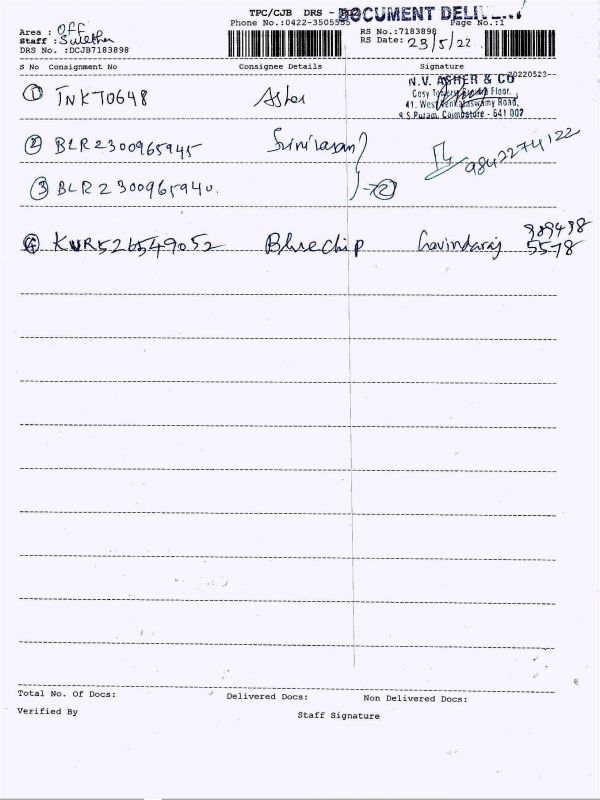 TPC/CJB DRS - DOCUMENT DELIVERY
Phone No.:0422-3505555 Page No.:1
Area : OFF RS No.:7183898
Staff : RS Date: 23/5/22
DRS No. :DCJB7183898
S No Consignment No Consignee Details Signature
20220523--
① TNKT0648 Asher N.V. ASHER & CO
Cosy Towers, Floor,
41, West Venkataswamy Road,
R.S Puram, Coimbatore - 641 002
② BLR2300965945 Srinivasan 9842274122
③ BLR2300965940. ②
④ KUR526549052 Bluechip Govindaraj 989498
5578
Total No. Of Docs: Delivered Docs: Non Delivered Docs:
Verified By Staff Signature